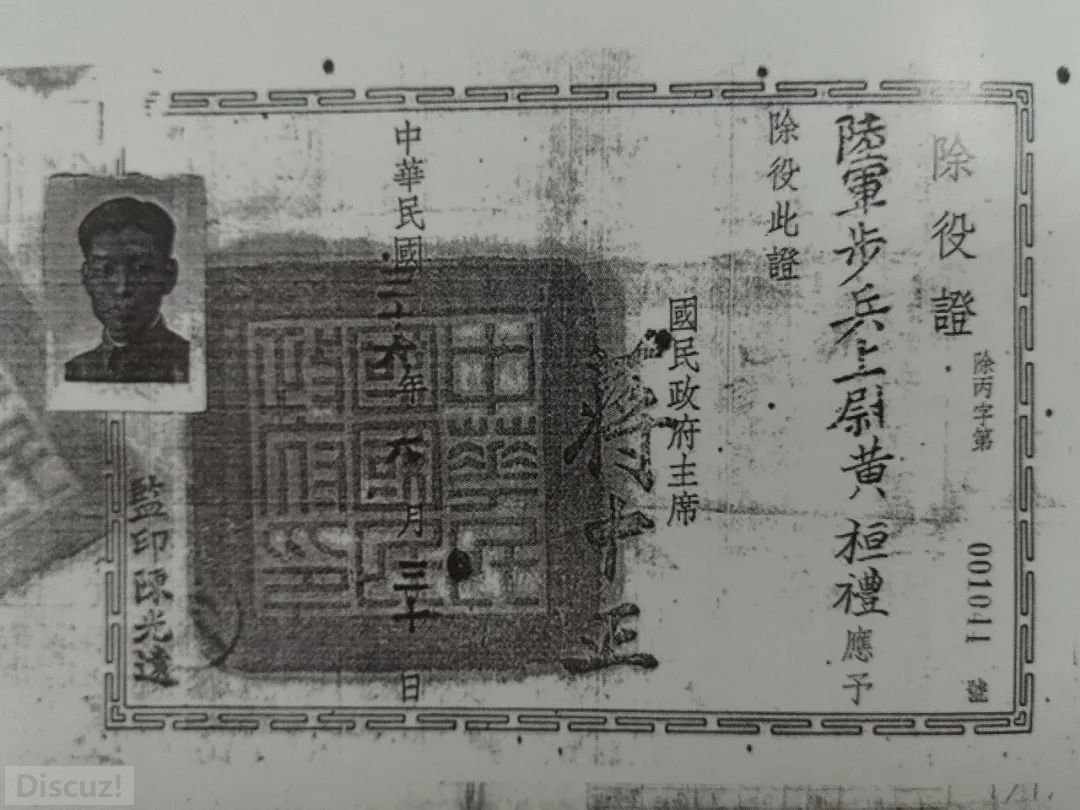 除役證
除丙字第001011號
陸軍步兵上尉黃桓禮應予
除役此證
國民政府主席
蔣中正
中華民國三十六年六月三十日
監印陳光遠
Discuz!